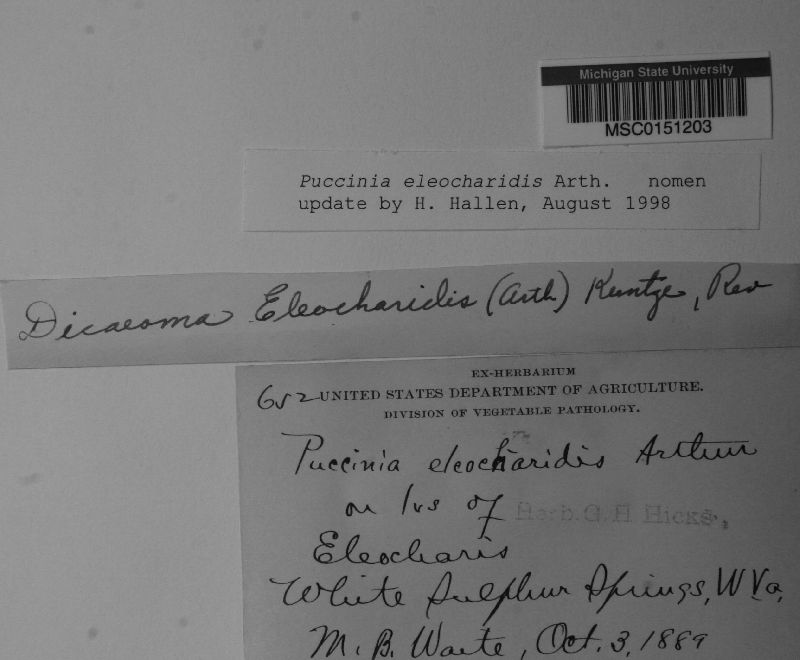 Michigan State University
MSC0151203
Puccinia eleocharidis Arth. nomen
update by H. Hallen, August 1998
Dicaeoma Eleocharidis (Arth) Kuntze, Rev
EX-HERBARIUM
652 UNITED STATES DEPARTMENT OF AGRICULTURE.
DIVISION OF VEGETABLE PATHOLOGY.
Puccinia eleocharidis Arthur
on lvs of
Herb. G. H. Hicks,
Eleocharis
White Sulphur Springs, W Va,
M. B. Waite, Oct. 3, 1889